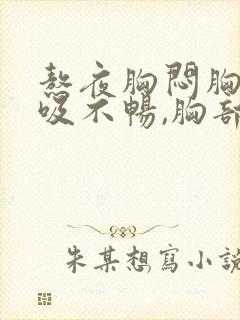 熬夜胸悶胸
吸不暢,胸部
朱某想寫小說